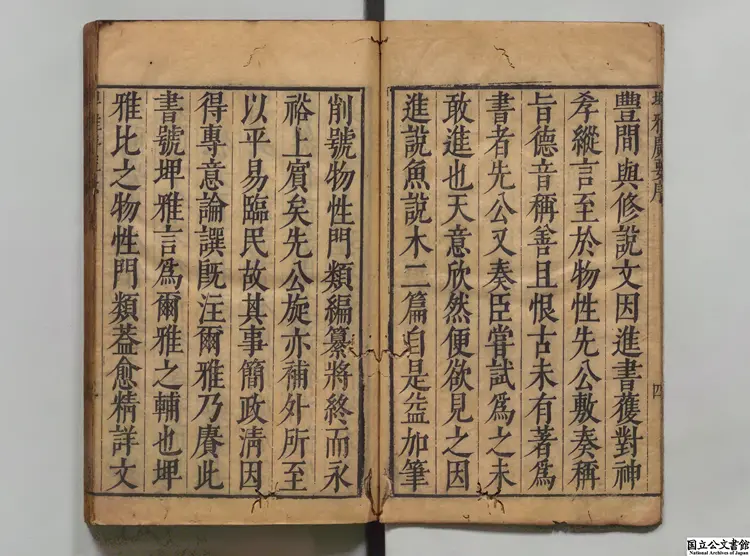 豐間與修說文因進書獲對神
考縱言至於物性先公敷奏稱
旨德音稱善且恨古未有著爲
書者先公又奏臣嘗試爲之未
敢進也天意欣然便欲見之因
進說魚說木二篇自是益加筆
削號物性門類編纂將終而永
裕上賓矣先公旋亦補外所至
以平易臨民故其事簡政淸因
得專意論譔旣注爾雅乃賡此
書號埤雅言爲爾雅之輔也埤
雅比之物性門類蓋愈精詳文
四
国立公文書館
National Archives of Japan